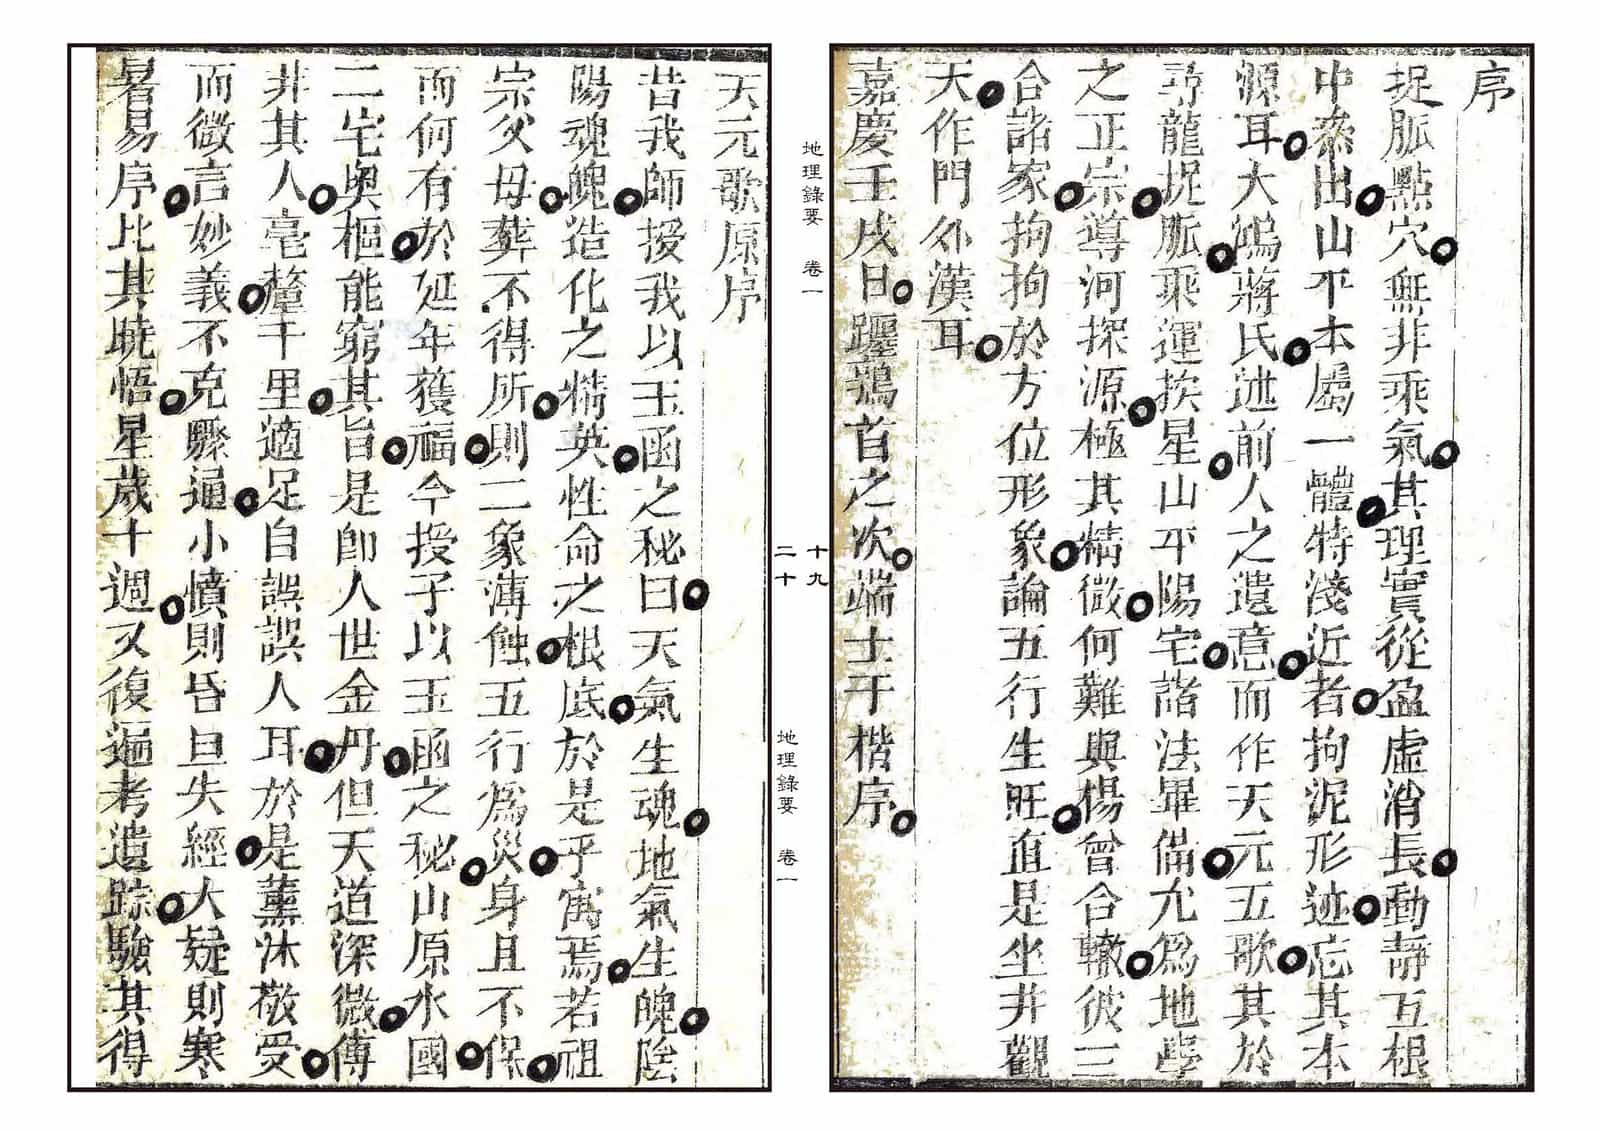 序
捉脈點穴無非乘氣其理實從盈虛消長動靜互根
中悉出山平本屬一體特淺近者拘泥形迹忘其本
源耳大鴻蔣氏述前人之遺意而作天元五歌其於
尋龍捉脈乘運挨星山平陽宅諸法畢備尤為地學
之正宗導河探源極其精微何難與楊曾合轍彼三
合諸家拘拘於方位形象論五行生旺直是坐井觀
天作門外漢耳
嘉慶壬戌日躔鶉首之次端士于楷序
地理錄要 卷一
十九
二十
地理錄要 卷一
天元歌原序
昔我師授我以玉函之秘曰天氣生魂地氣生魄陰
陽魂魄造化之精英性命之根底於是乎寓焉若祖
宗父母葬不得所則二象薄蝕五行為災身且不保
而何有於延年獲福今授子以玉函之秘山原水國
二宅奧樞能窮其旨是即人世金丹但天道深微傳
非其人毫釐千里適足自誤誤人耳於是薰沐敬受
而微言妙義不克驟通小憤則昏旦失經大疑則寒
暑易序比其曉悟星歲十週又復遍考遺踪驗其得